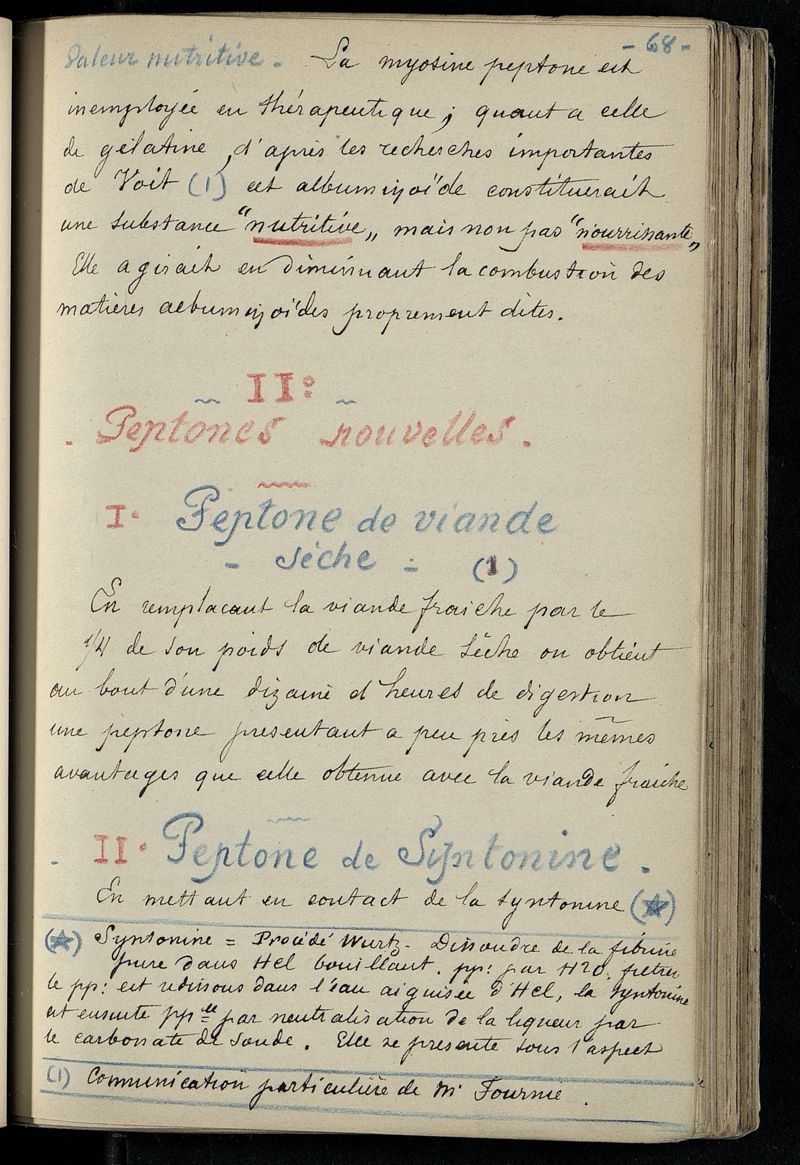 - 68 -
Valeur nutritive. La myosine peptone est
inemployée en thérapeutique; quant a celle
de gélatine, d'après les recherches importantes
de Voit (1) cet albuminoïde constituerait
une substance "nutritive" mais non pas "nourrissante"
Elle agirait en diminuant la combustion des
matières albuminoïdes proprement dites.
II°
- Peptones nouvelles.
I. Peptone de viande
- sèche - (1)
En remplacant la viande fraiche par le
1/4 de son poids de viande sêche on obtient
au bout d'une dizaine d'heures de digestion
une peptone presentant a peu près les mêmes
avantages que celle obtenue avec la viande fraiche
- II. Peptone de Syntonine.
En mettant en contact de la syntonine (☆)
(☆) Syntonine = Procédé Wurtz. Dissoudre de la fibrine
pure dans Hcl bouillant. pp: par H2O, filtrer
le pp: est redissous dans l'eau aiguisée d'Hcl, la syntonine
est ensuite ppée par neutralisation de la liqueur par
le carbonate de soude. Elle se presente sous l'aspect
(1) Communication particulière de Mr Fournie.